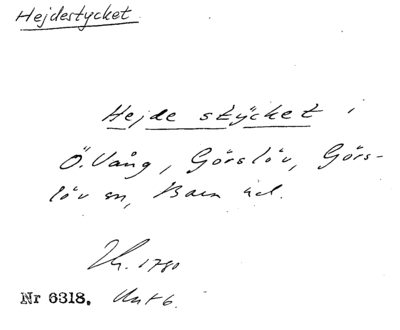 Hejdestycket
Hejde stÿcket i
Ö. Vång, Görslöv, Görs-
löv sn, Bara hd.
1780
Nr 6318.